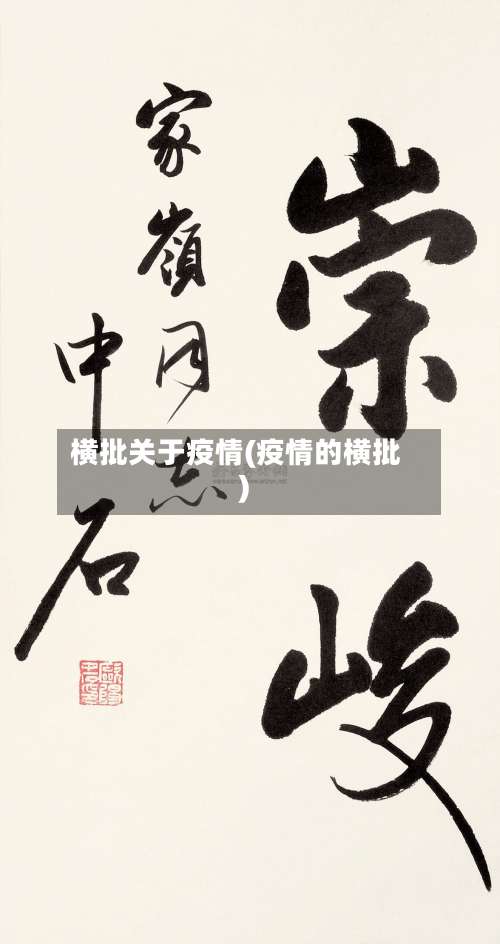 崇峻
家嶺同志
中石
横批关于疫情(疫情的横批
)